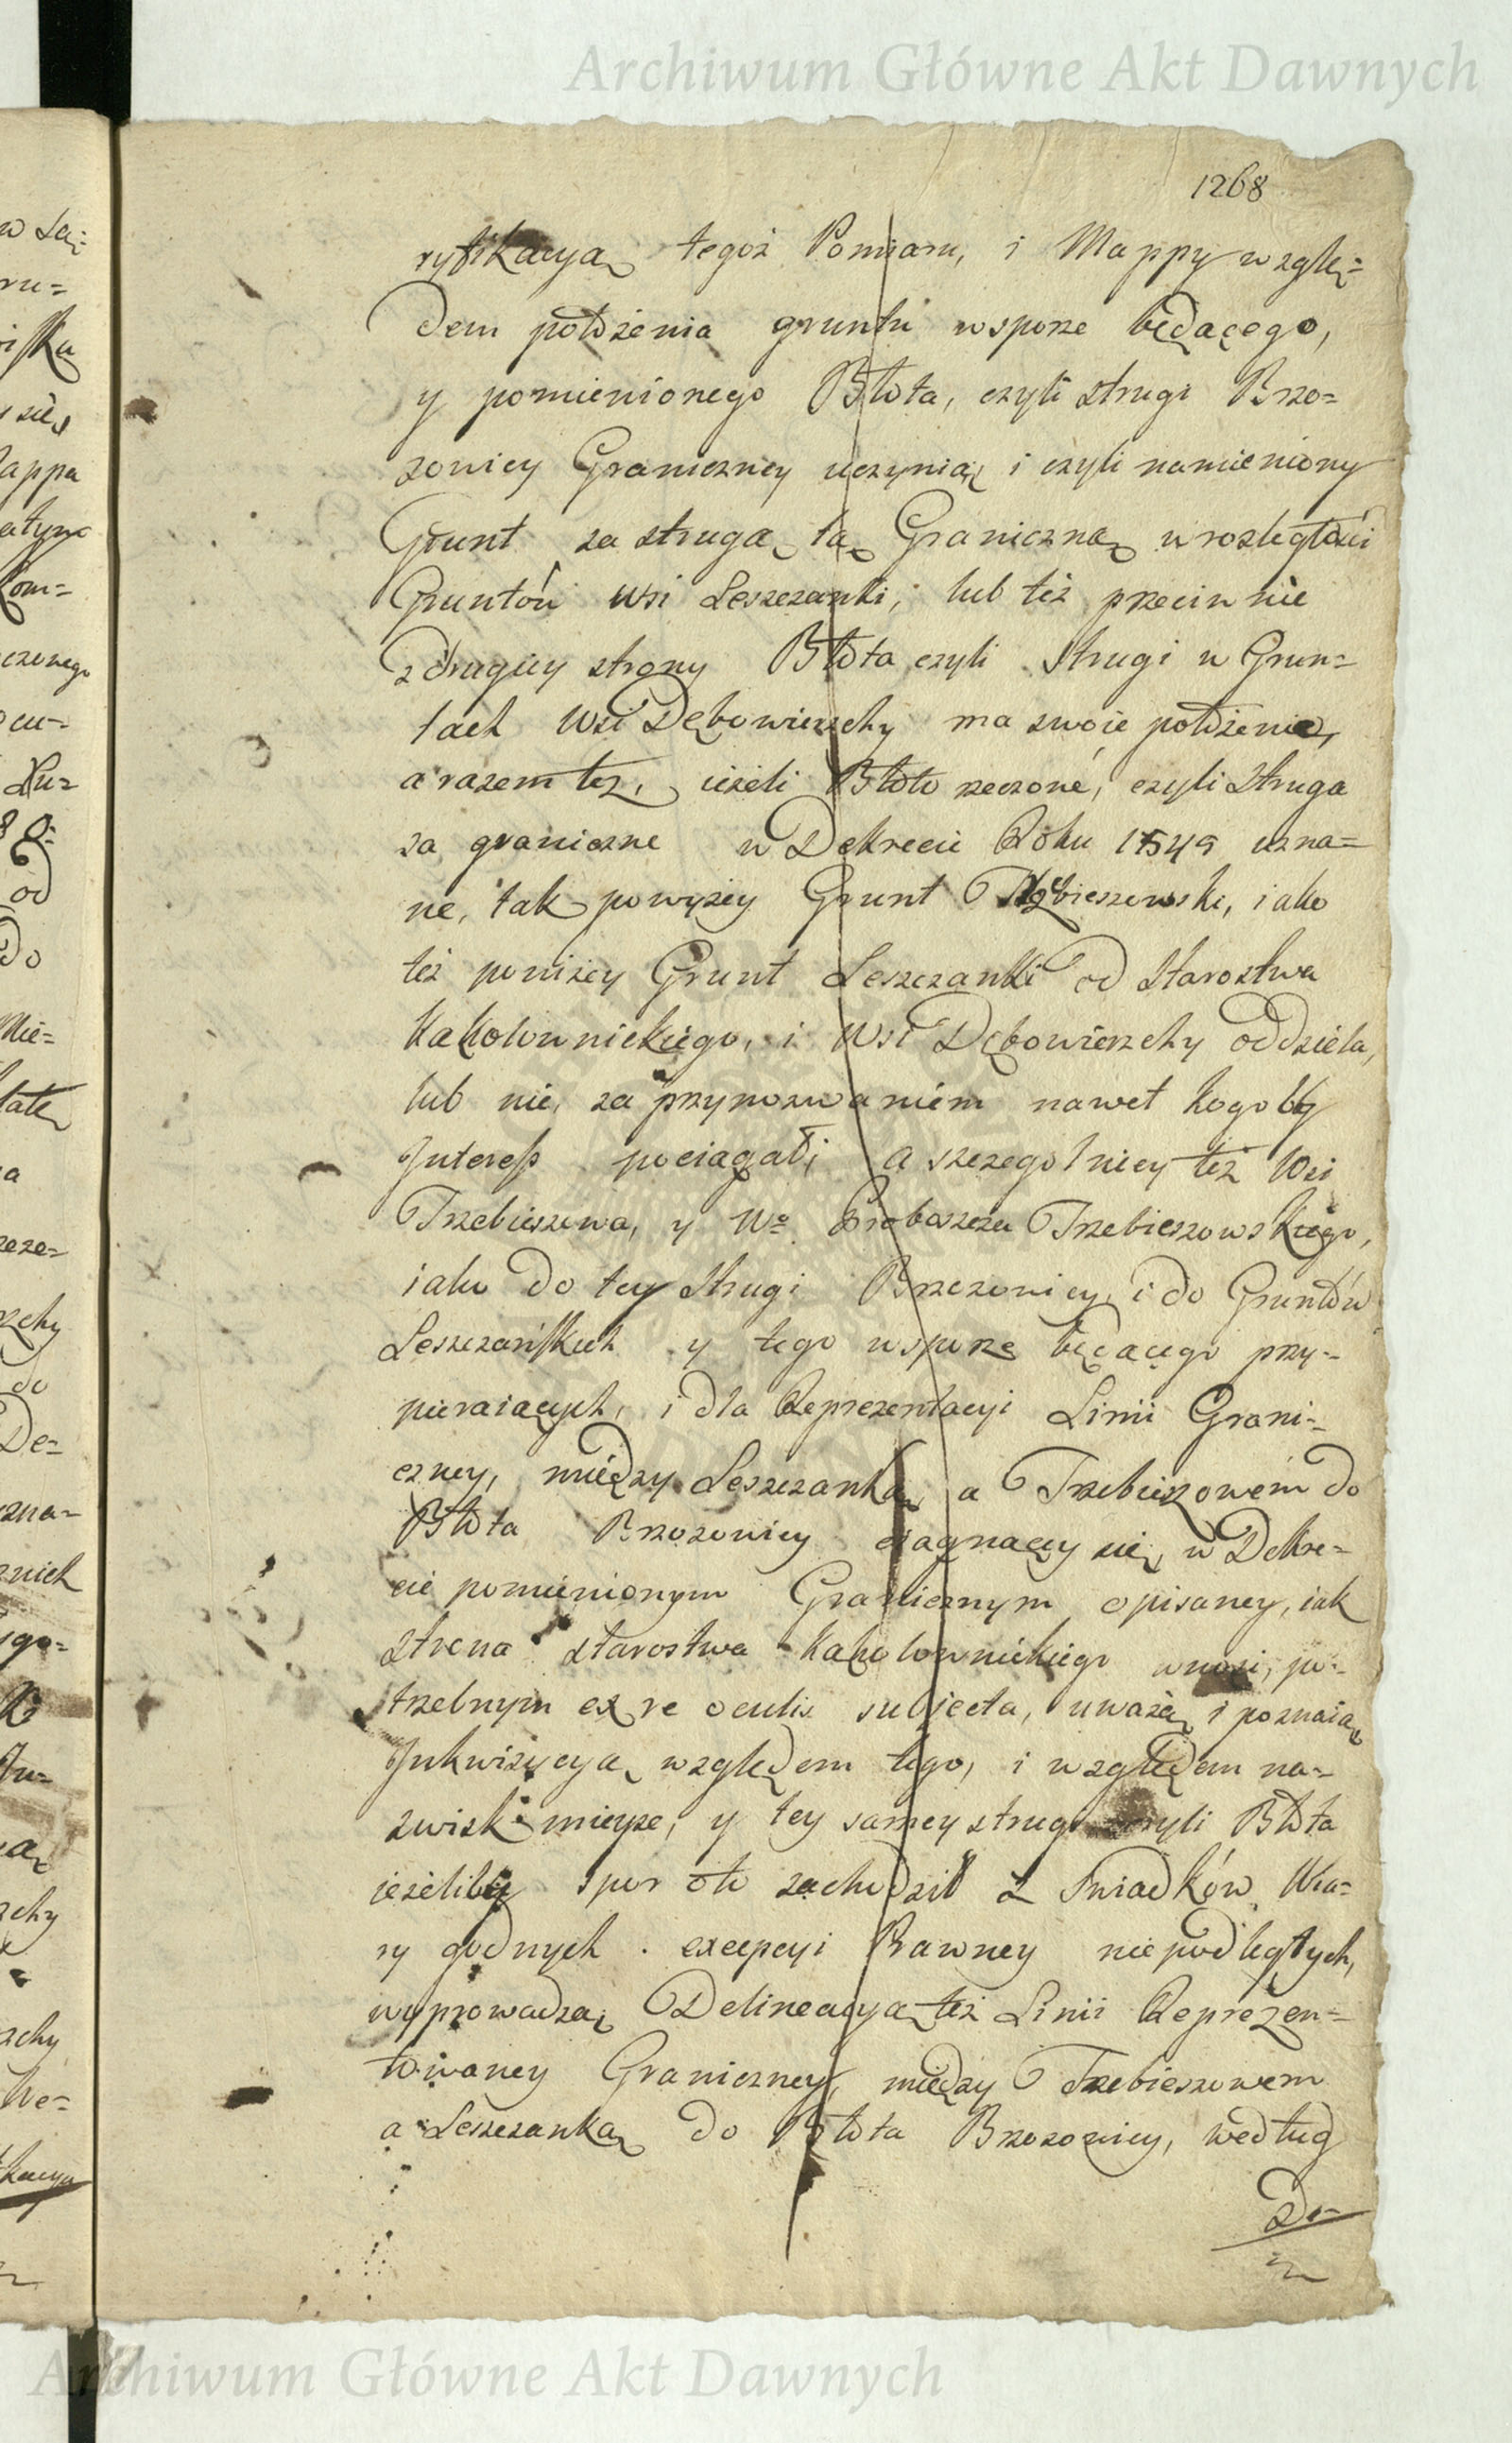 Archiwum Główne Akt Dawnych
1268
ryfikacyą tegoż Pomiaru, i Mappy wzglę=
dem położenia gruntu wsporze będącego,
y pomienionego Błota, czyli strugi Brzo=
zowicy Graniczney uczynią i czyli namieniony
Grunt za strugą tą Graniczną w rozległości
Gruntów wsi Leszczanki, lub też przeciwnie
z drugiey strony Błota czyli Strugi w Grun=
tach Wsi Dębowierzchy ma swoie położenie,
a razem też, ieżeli Błoto rzeczone, czyli Struga
za graniczne w Dekrecie Roku 1549 uzna=
ne, tak powyżey Grunt Trzebieszowski, iako
też poniżey Grunt Leszczanki od Starostwa
Kąkolownickiego, i Wsi Dębowierzchy oddziela,
lub nie, za przypozwaniem nawet kogo by
Interess pociągał, a szczególniey też Wsi
Trzebieszowa, y Wo Proboszcza Trzebieszowskiego,
iako do tey Strugi Brzozowicy, i do Gruntów
Leszczańskich y tego wsporze będącego przy=
pieraiących, i dla Reprezentacyi Linii Grani=
czney, między Leszczanką a Trzebieszowem do
Błota Brzozowicy ciągnącey się, w Dekre=
cie pomienionym Granicznym opisaney, iak
Strona Starostwa Kąkolownickiego wnosi, po=
trzebnym ex re oculis subjecta, uważą i poznaią
Inkwizycyą względem tego, i względem na=
zwisk mieysc, y tey samey strugi czyli Błota
ieżeliby spor oto zachodził z Swiadków Wia=
ry godnych excepcyi Prawney niepodległych,
wyprowadzą, Delineacyą też Linii Reprezen=
towaney Graniczney, między Trzebieszowem
a Leszczanką do Błota Brzozowicy, według
De=
Archiwum Główne Akt Dawnych